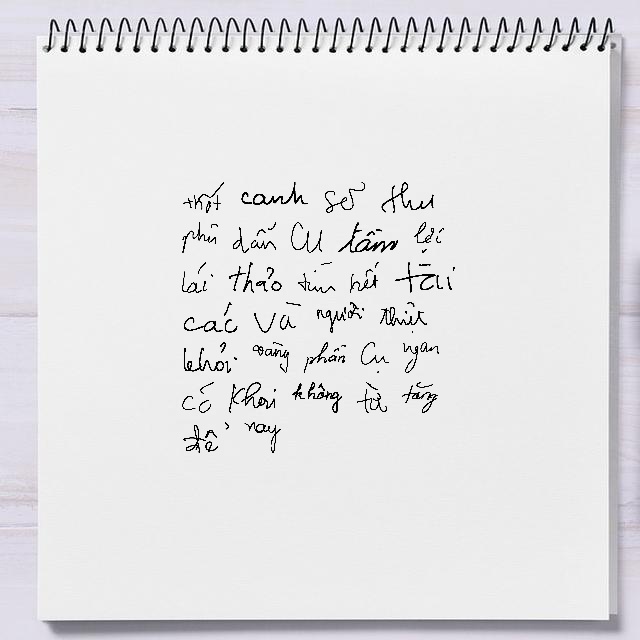 canh sở thu
phu dẫn Cu tầm lợi
lái thảo tìm hết Tài
các Và người thiệt
khỏi bằng phần Cụ ngan
có Khơi không từ tăng
để nay